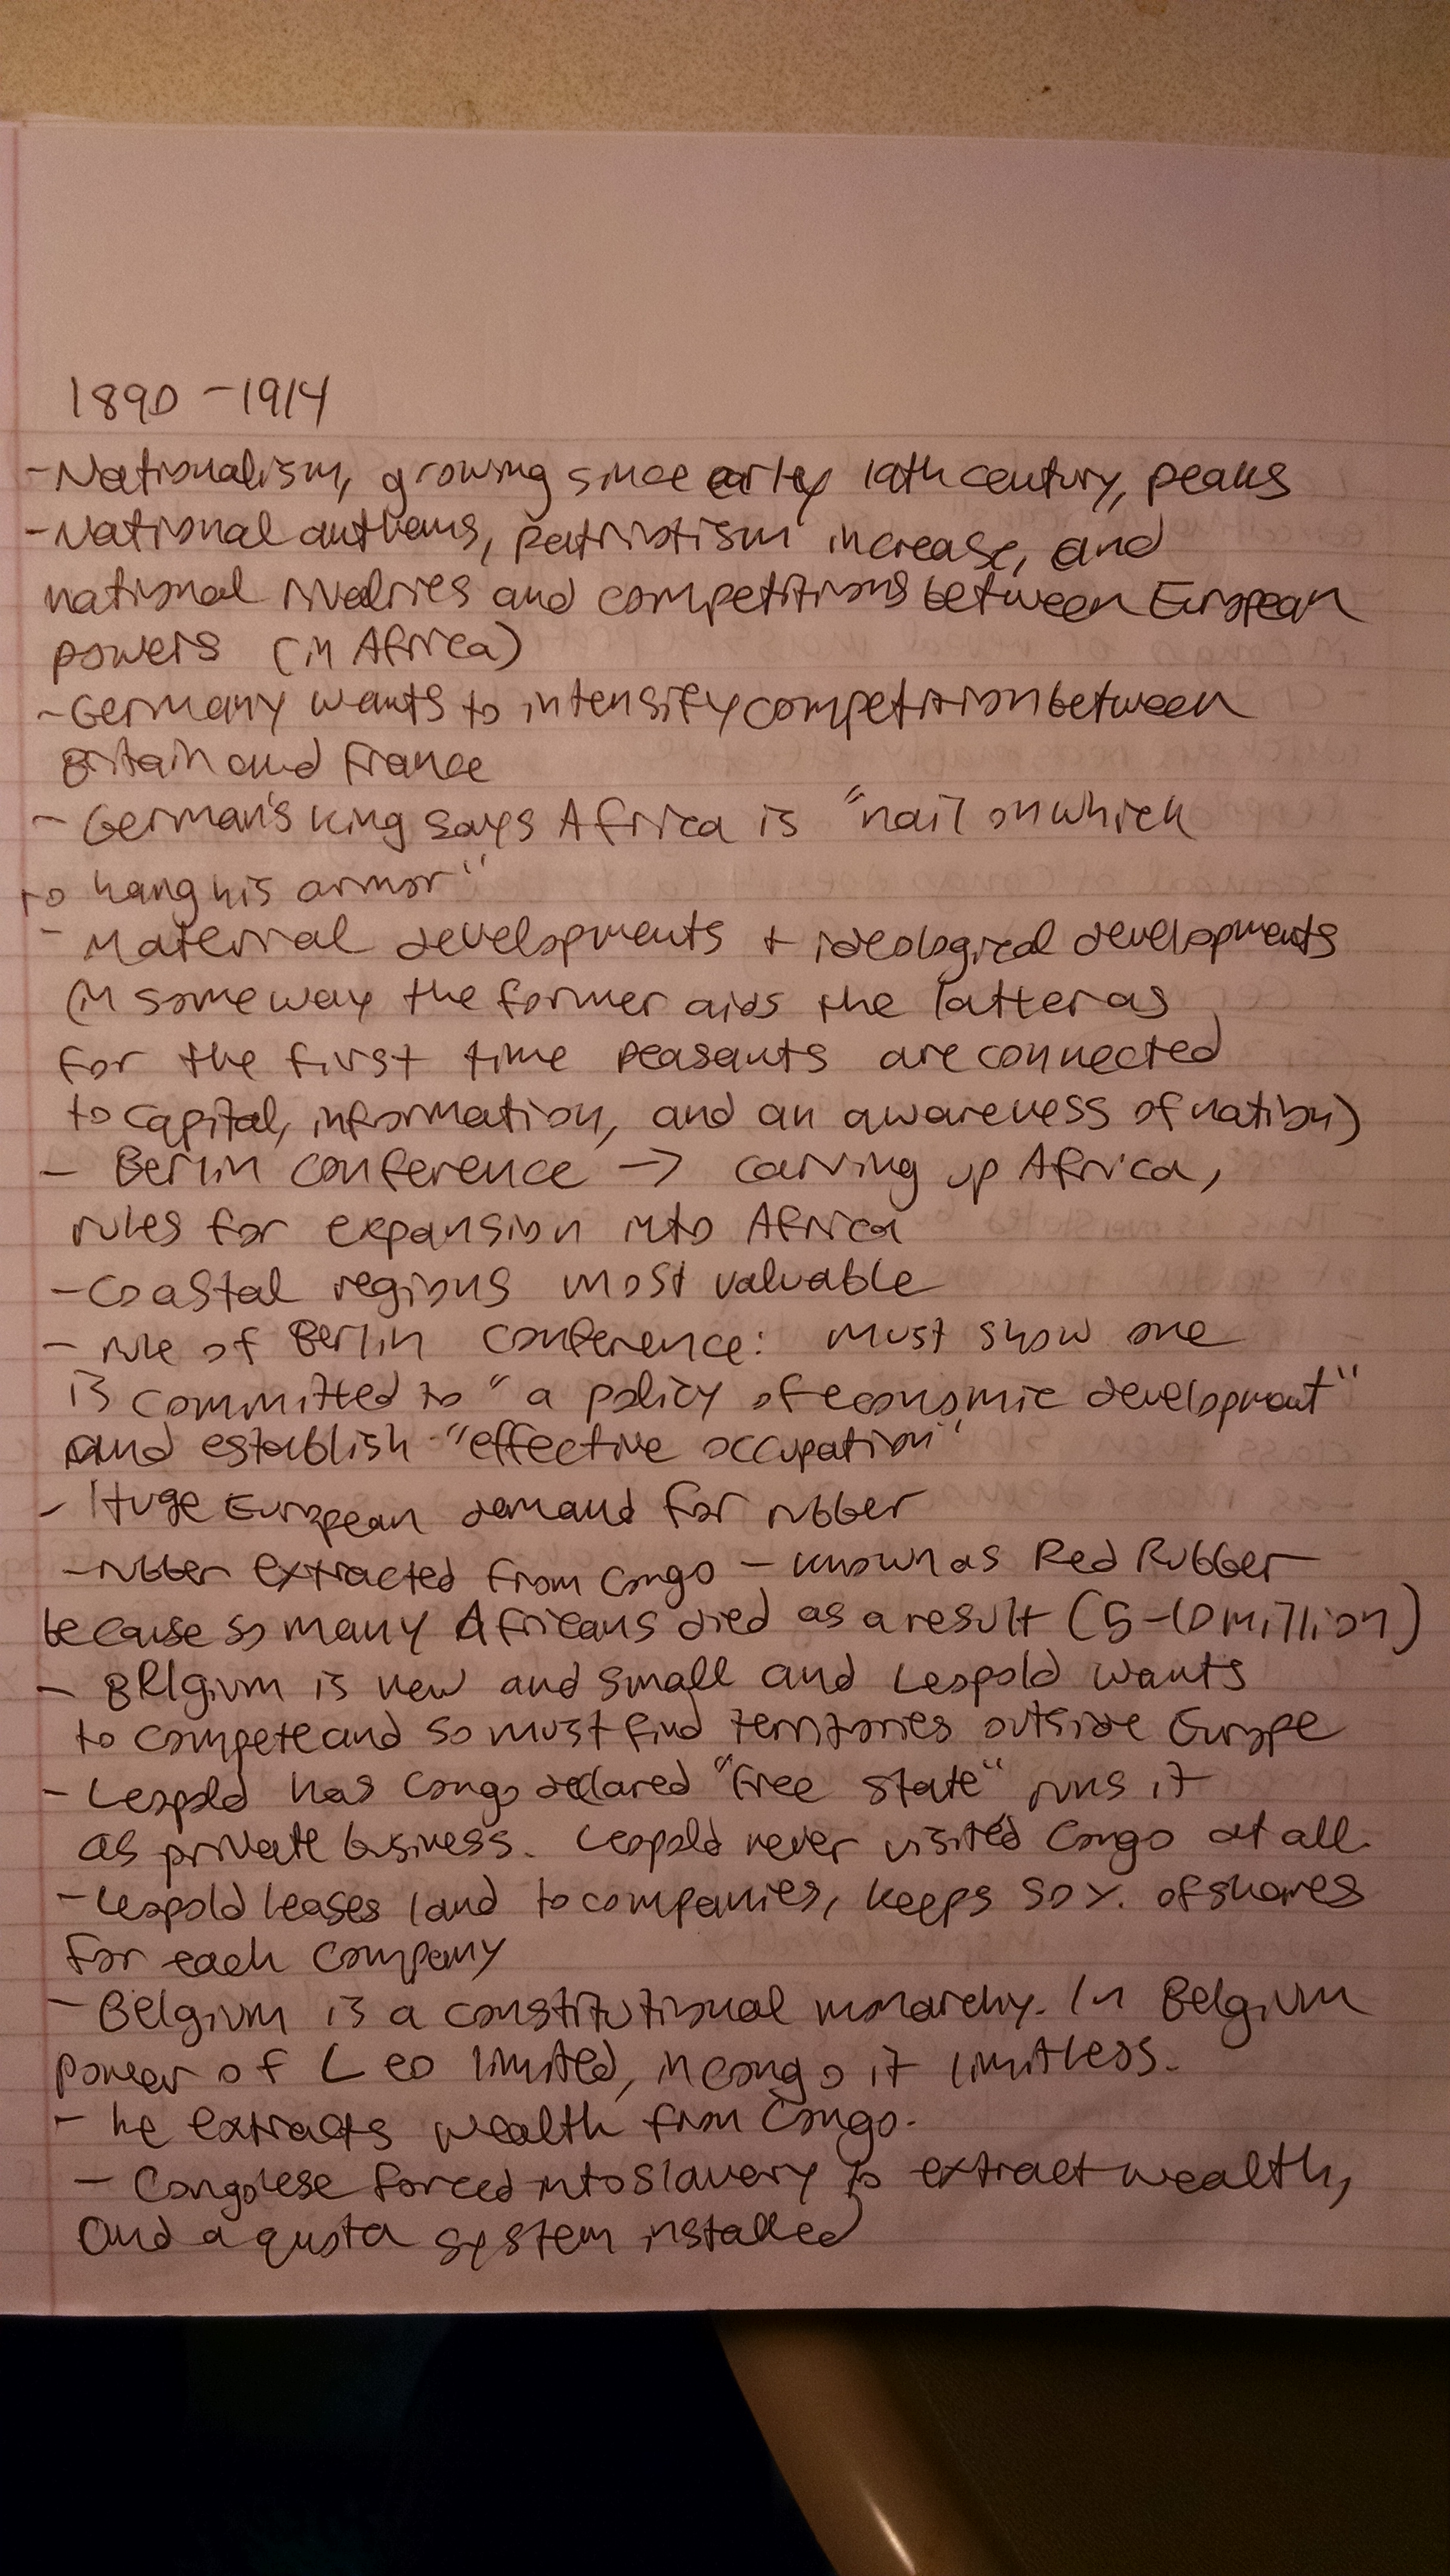 1890 - 1914
- Nationalism, growing since early 19th century, peaks
- National anthems, patriotism increase, and
national rivalries and competitions between European
powers (in Africa)
- Germany wants to intensify competition between
Britain and France
- German's king says Africa is "nail on which
to hang his armor"
- Material developments + ideological developments
(in some way the former aids the latter as
for the first time peasants are connected
to capital, information, and an awareness of nation)
- Berlin Conference -> carving up Africa,
rules for expansion into Africa
- Coastal regions most valuable
- rule of Berlin Conference: must show one
is committed to "a policy of economic development"
and establish "effective occupation"
- Huge European demand for rubber
- rubber extracted from Congo - known as Red Rubber
because so many Africans died as a result (5-10 million)
- Belgium is new and small and Leopold wants
to compete and so must find territories outside Europe
- Leopold has Congo declared "free state" runs it
as private business. Leopold never visited Congo at all.
- Leopold leases land to companies, keeps 50%. of shares
for each company
- Belgium is a constitutional monarchy. In Belgium
power of Leo limited, in Congo it limitless.
- he extracts wealth from Congo.
- Congolese forced into slavery to extract wealth,
and a quota system installed